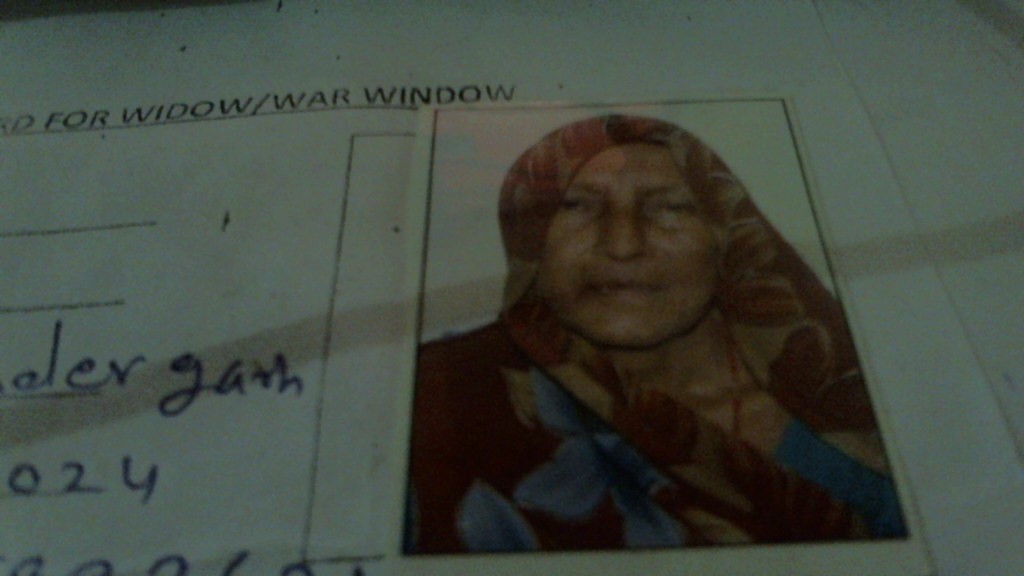 RD FOR WIDOW/WAR WINDOW
der garh
024